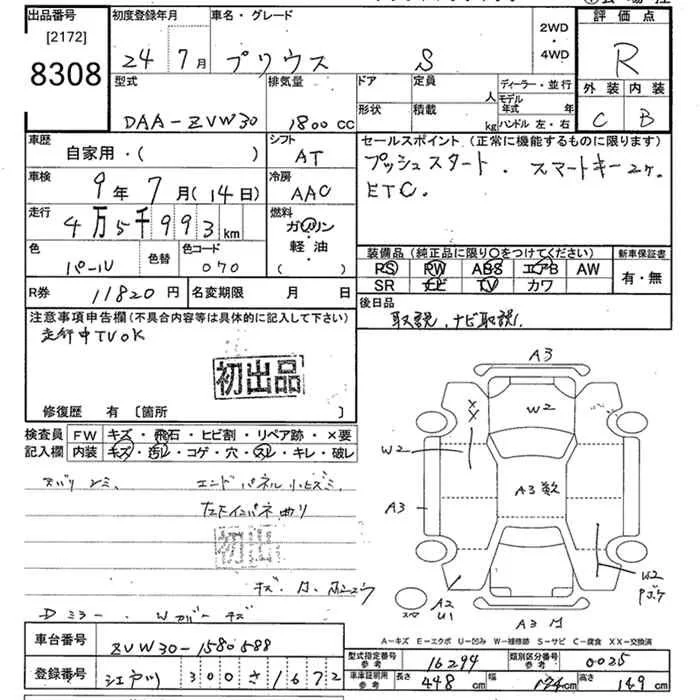 出品番号
[2172]
8308
初度登録年月
24 7月
車名・グレード
プリウス S
2WD
・
4WD
評価点
R
外装 内装
C B
型式
DAA-ZVW30
排気量
1800 cc
ドア 定員 人
形状 積載 kg
ディーラー・並行
モデル年式 年
ハンドル 左・右
車歴
自家用・( )
シフト
AT
セールスポイント (正常に機能するものに限ります)
プッシュスタート . スマートキー2ヶ.
ETC.
車検
9年 7月(14日)
冷房
AAC
走行
4万5千993km
燃料
ガソリン
軽・油
( )
色
パール
色替
色コード
070
装備品 (純正品に限り○をつけてください)
PS PW ABS エアB AW
SR ナビ TV カワ
新車保証書
有・無
R券 11820円
名変期限 月 日
後日品
取説, ナビ取説.
注意事項申告欄 (不具合内容等は具体的に記入して下さい)
走行中TVOK
初出品
修復歴 有 〔箇所 〕
検査員
記入欄
FW キズ・飛石・ヒビ割・リペア跡・×要
内装 キズ・汚レ・コゲ・穴・スレ・キレ・破レ
エンドパネル
初出
Dミラー . Wカバーキズ
A3
W2
XX
W2
A3
A3数
W2
A2
U1
A3
A-キズ E-エクボ U-凹み W-補修跡 S-サビ C-腐食 XX-交換済
車台番号
ZVW30-1580588
登録番号
300さ1672
型式指定番号
参考
16294
類別区分番号
参考
0025
車庫証明用
参考
長さ 448cm 幅 174cm 高さ 149cm